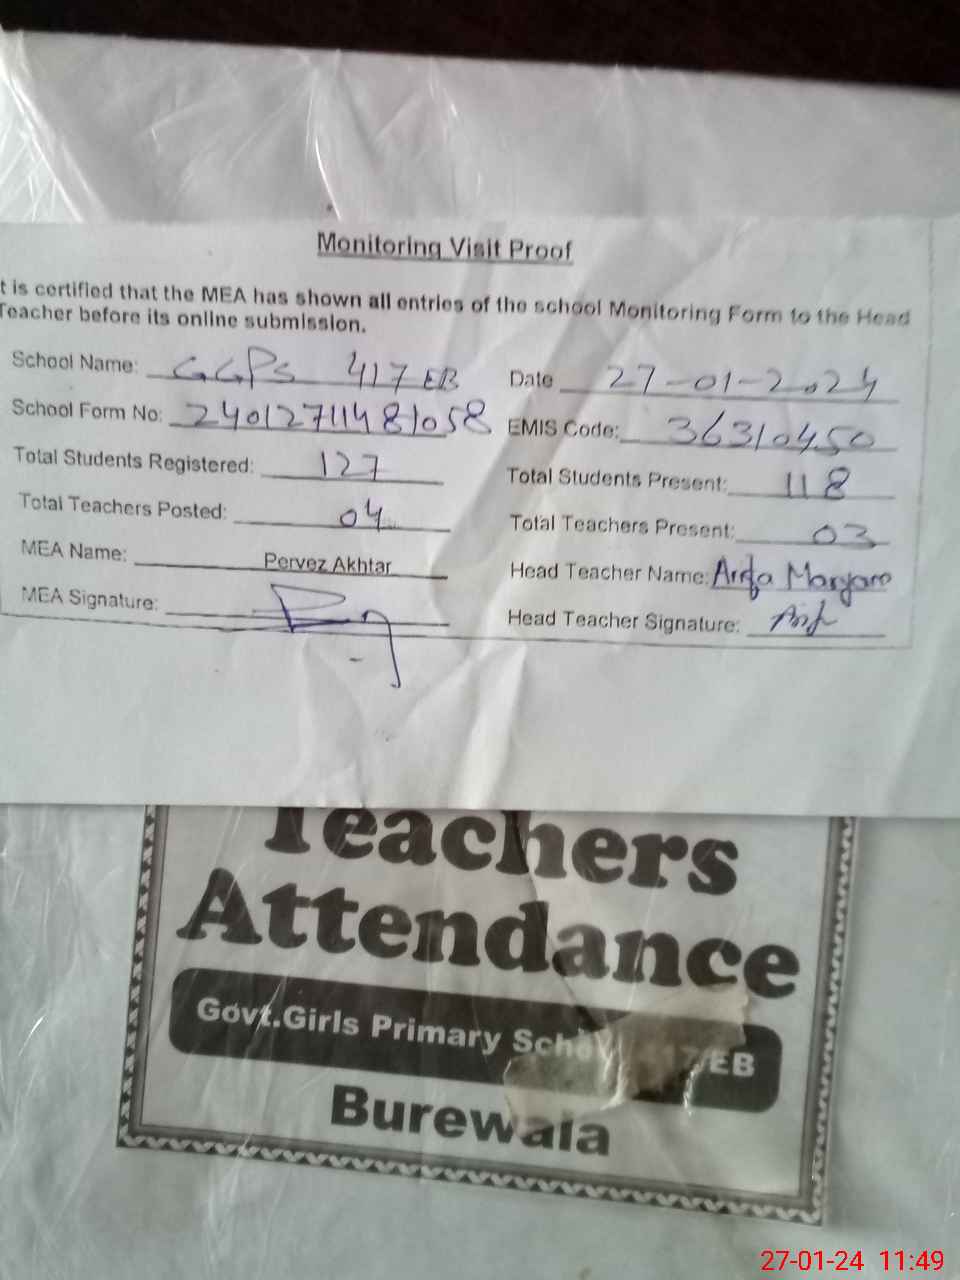 Monitoring Visit Proof
t is certified that the MEA has shown all entries of the school Monitoring Form to the Head
Teacher before its online submission.
School Name: GGPS 417 EB Date 27-01-2024
School Form No: 24012711481058 EMIS Code: 36310450
Total Students Registered: 127 Total Students Present: 118
Total Teachers Posted: 04 Total Teachers Present: 03
MEA Name: Pervez Akhtar Head Teacher Name: Maryam
MEA Signature: Head Teacher Signature:
Teachers
Attendance
Govt.Girls Primary School 417/EB
Burewala
27-01-24 11:49